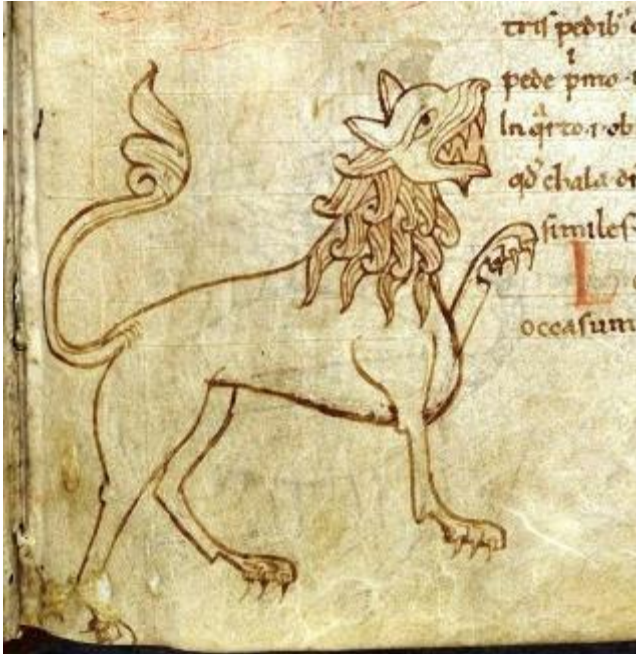 tris pedib'
i
pede pmo
In qrto
qd' chala
similes
L
occasum